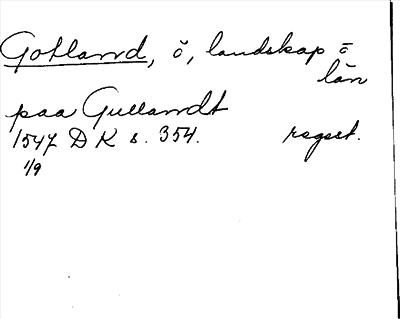 Gotland, ö, landskap o
län
paa Gullandt
1547 DK s. 354. regest.
1/9